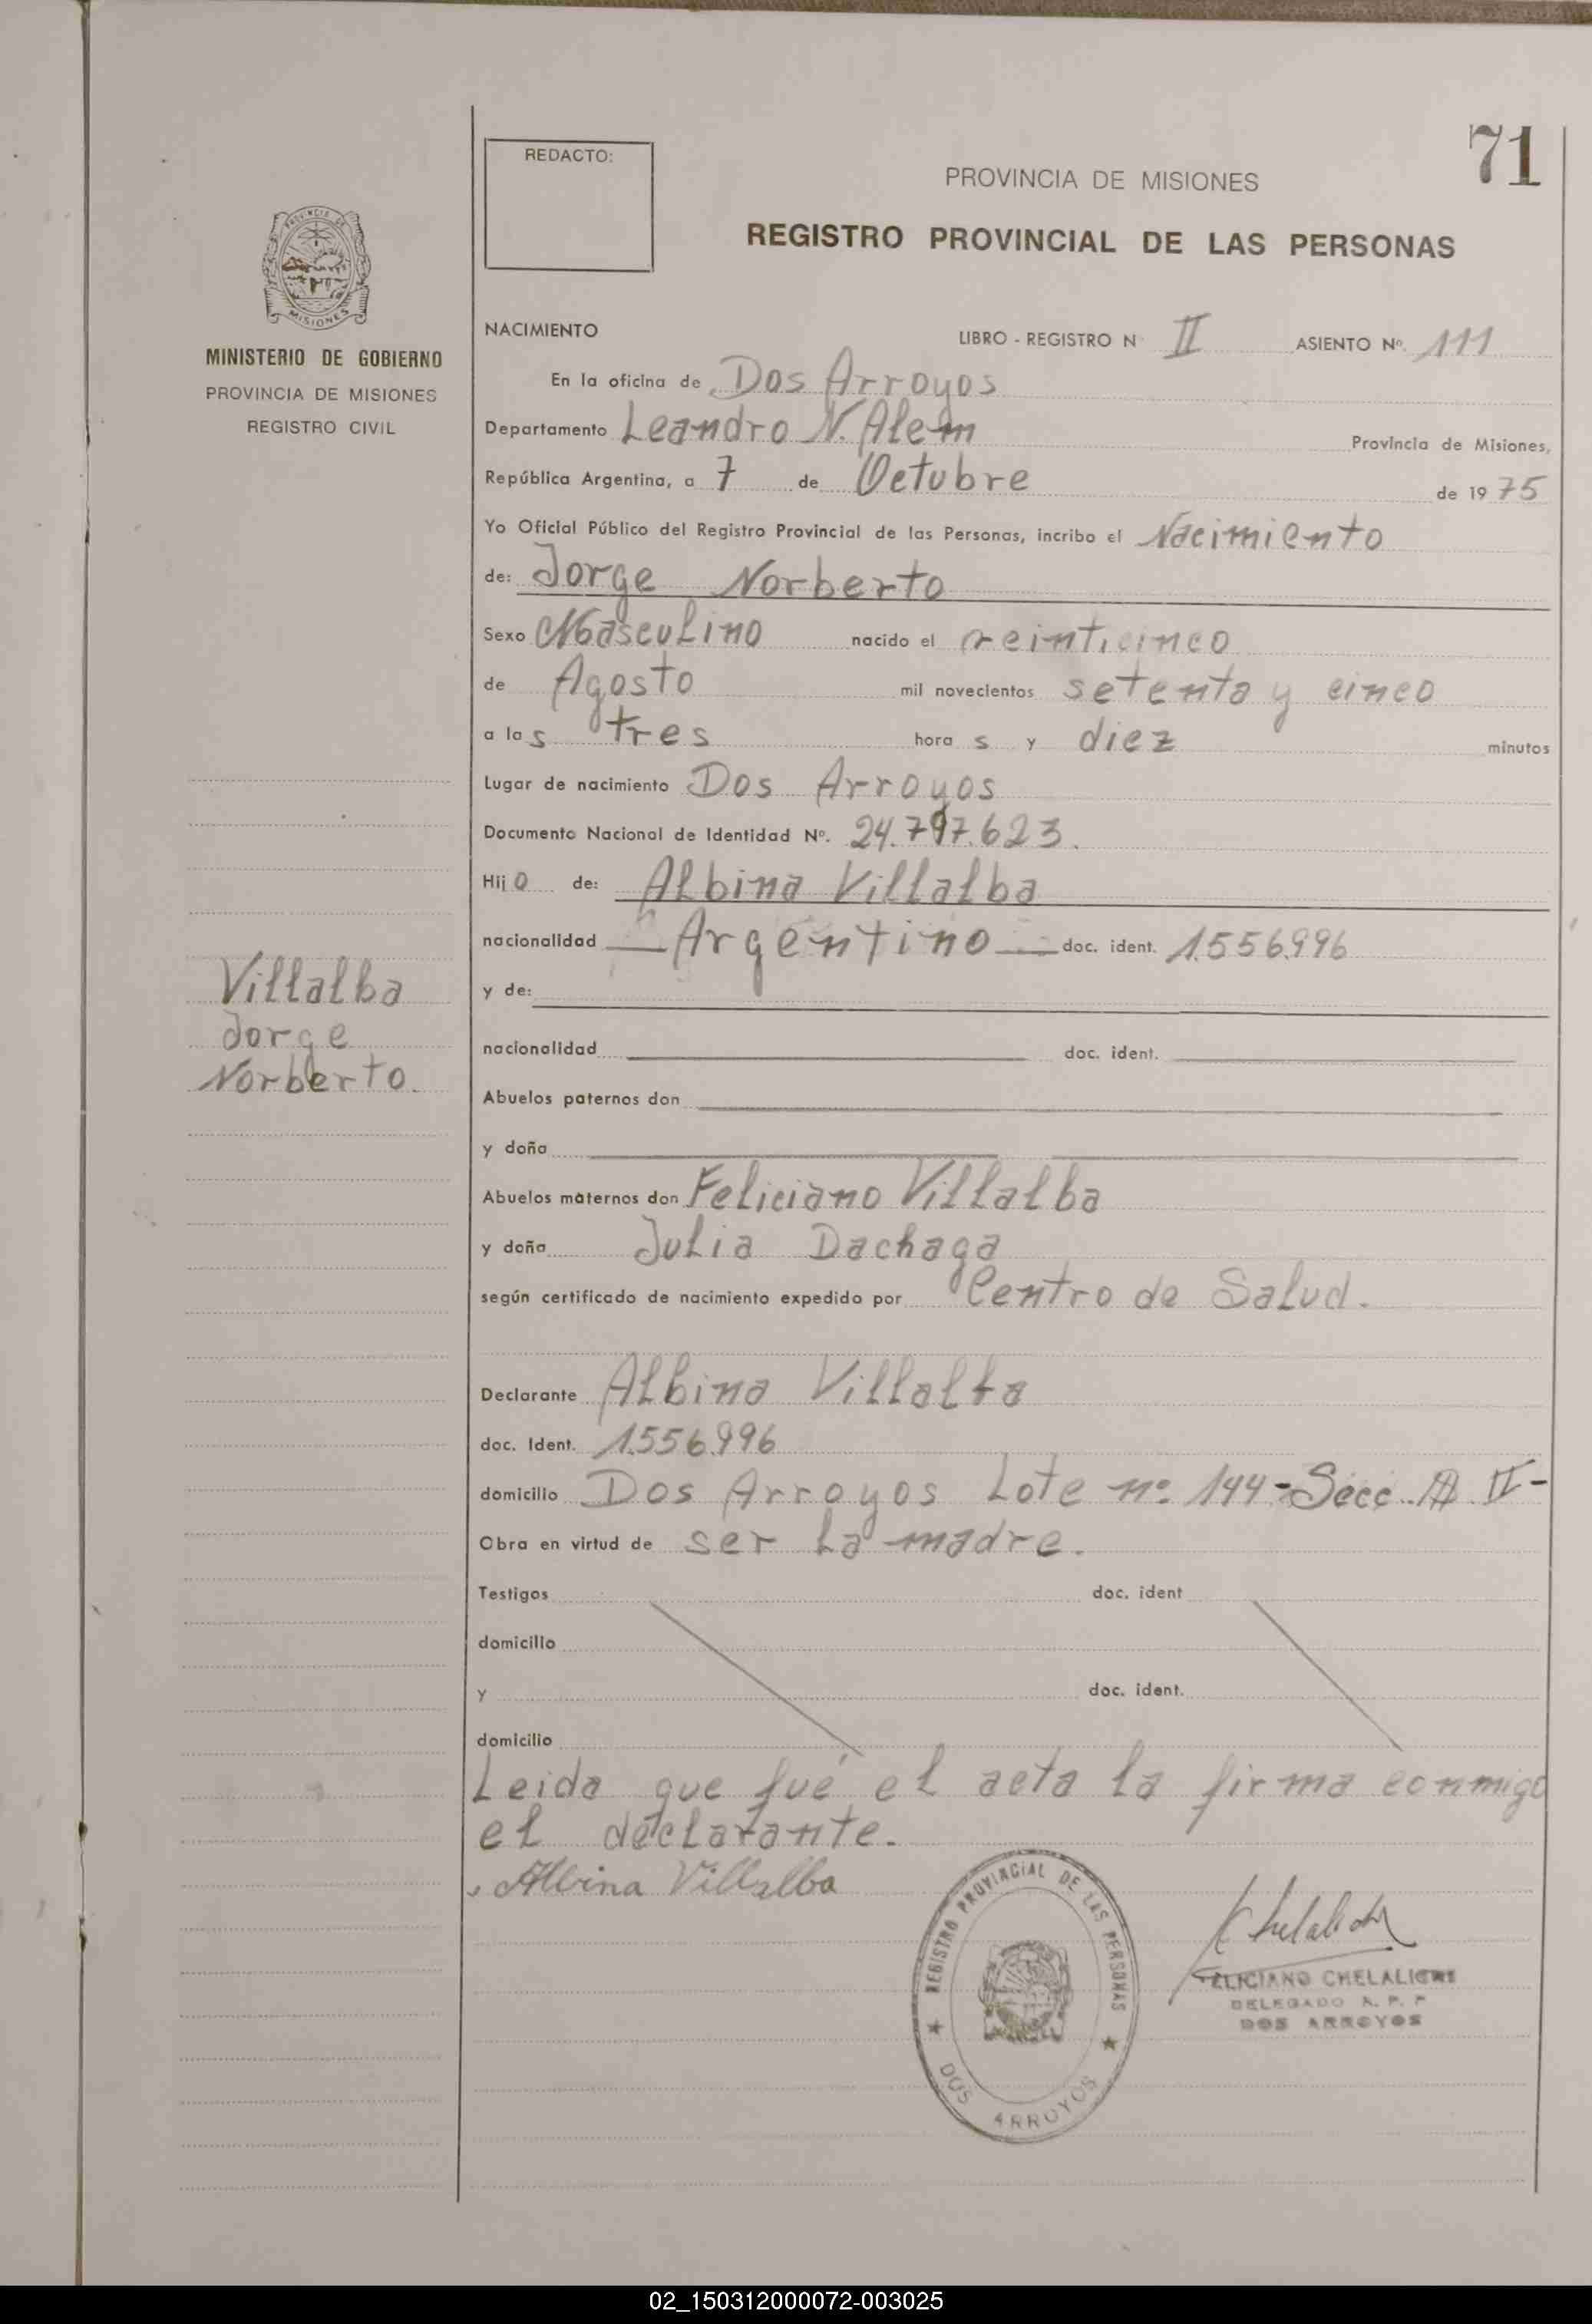 71
REDACTO:
PROVINCIA DE MISIONES
REGISTRO PROVINCIAL DE LAS PERSONAS
PROVINCIA DE
MISIONES
MINISTERIO DE GOBIERNO
PROVINCIA DE MISIONES
REGISTRO CIVIL
NACIMIENTO LIBRO - REGISTRO N II ASIENTO Nº. 111
En la oficina de Dos Arroyos
Departamento Leandro N. Alem Provincia de Misiones,
República Argentina, a 7 de Octubre de 1975
Yo Oficial Público del Registro Provincial de las Personas, incribo el Nacimiento
de: Jorge Norberto
Sexo Masculino nacido el veinticinco
de Agosto mil novecientos setenta y cinco
a las tres horas y diez minutos
Lugar de nacimiento Dos Arroyos
Documento Nacional de Identidad Nº. 24.797.623.
Hijo de: Albina Villalba
nacionalidad Argentino doc. ident. 1.556.996
y de:
nacionalidad doc. ident.
Abuelos paternos don
y doña
Abuelos maternos don Feliciano Villalba
y doña Julia Dachaga
según certificado de nacimiento expedido por Centro de Salud.
Villalba
Jorge
Norberto.
Declarante Albina Villalba
doc. Ident. 1.556.996
domicilio Dos Arroyos Lote nº 144-Secc. II-
Obra en virtud de ser la madre.
Testigos doc. ident
domicilio
y doc. ident.
domicilio
Leida que fué el acta la firma conmigo
el declarante.
Albina Villalba
REGISTRO PROVINCIAL DE LAS PERSONAS
DOS ARROYOS
FELICIANO
DELEGADO R. P. P
DOS ARROYOS
02_150312000072-003025